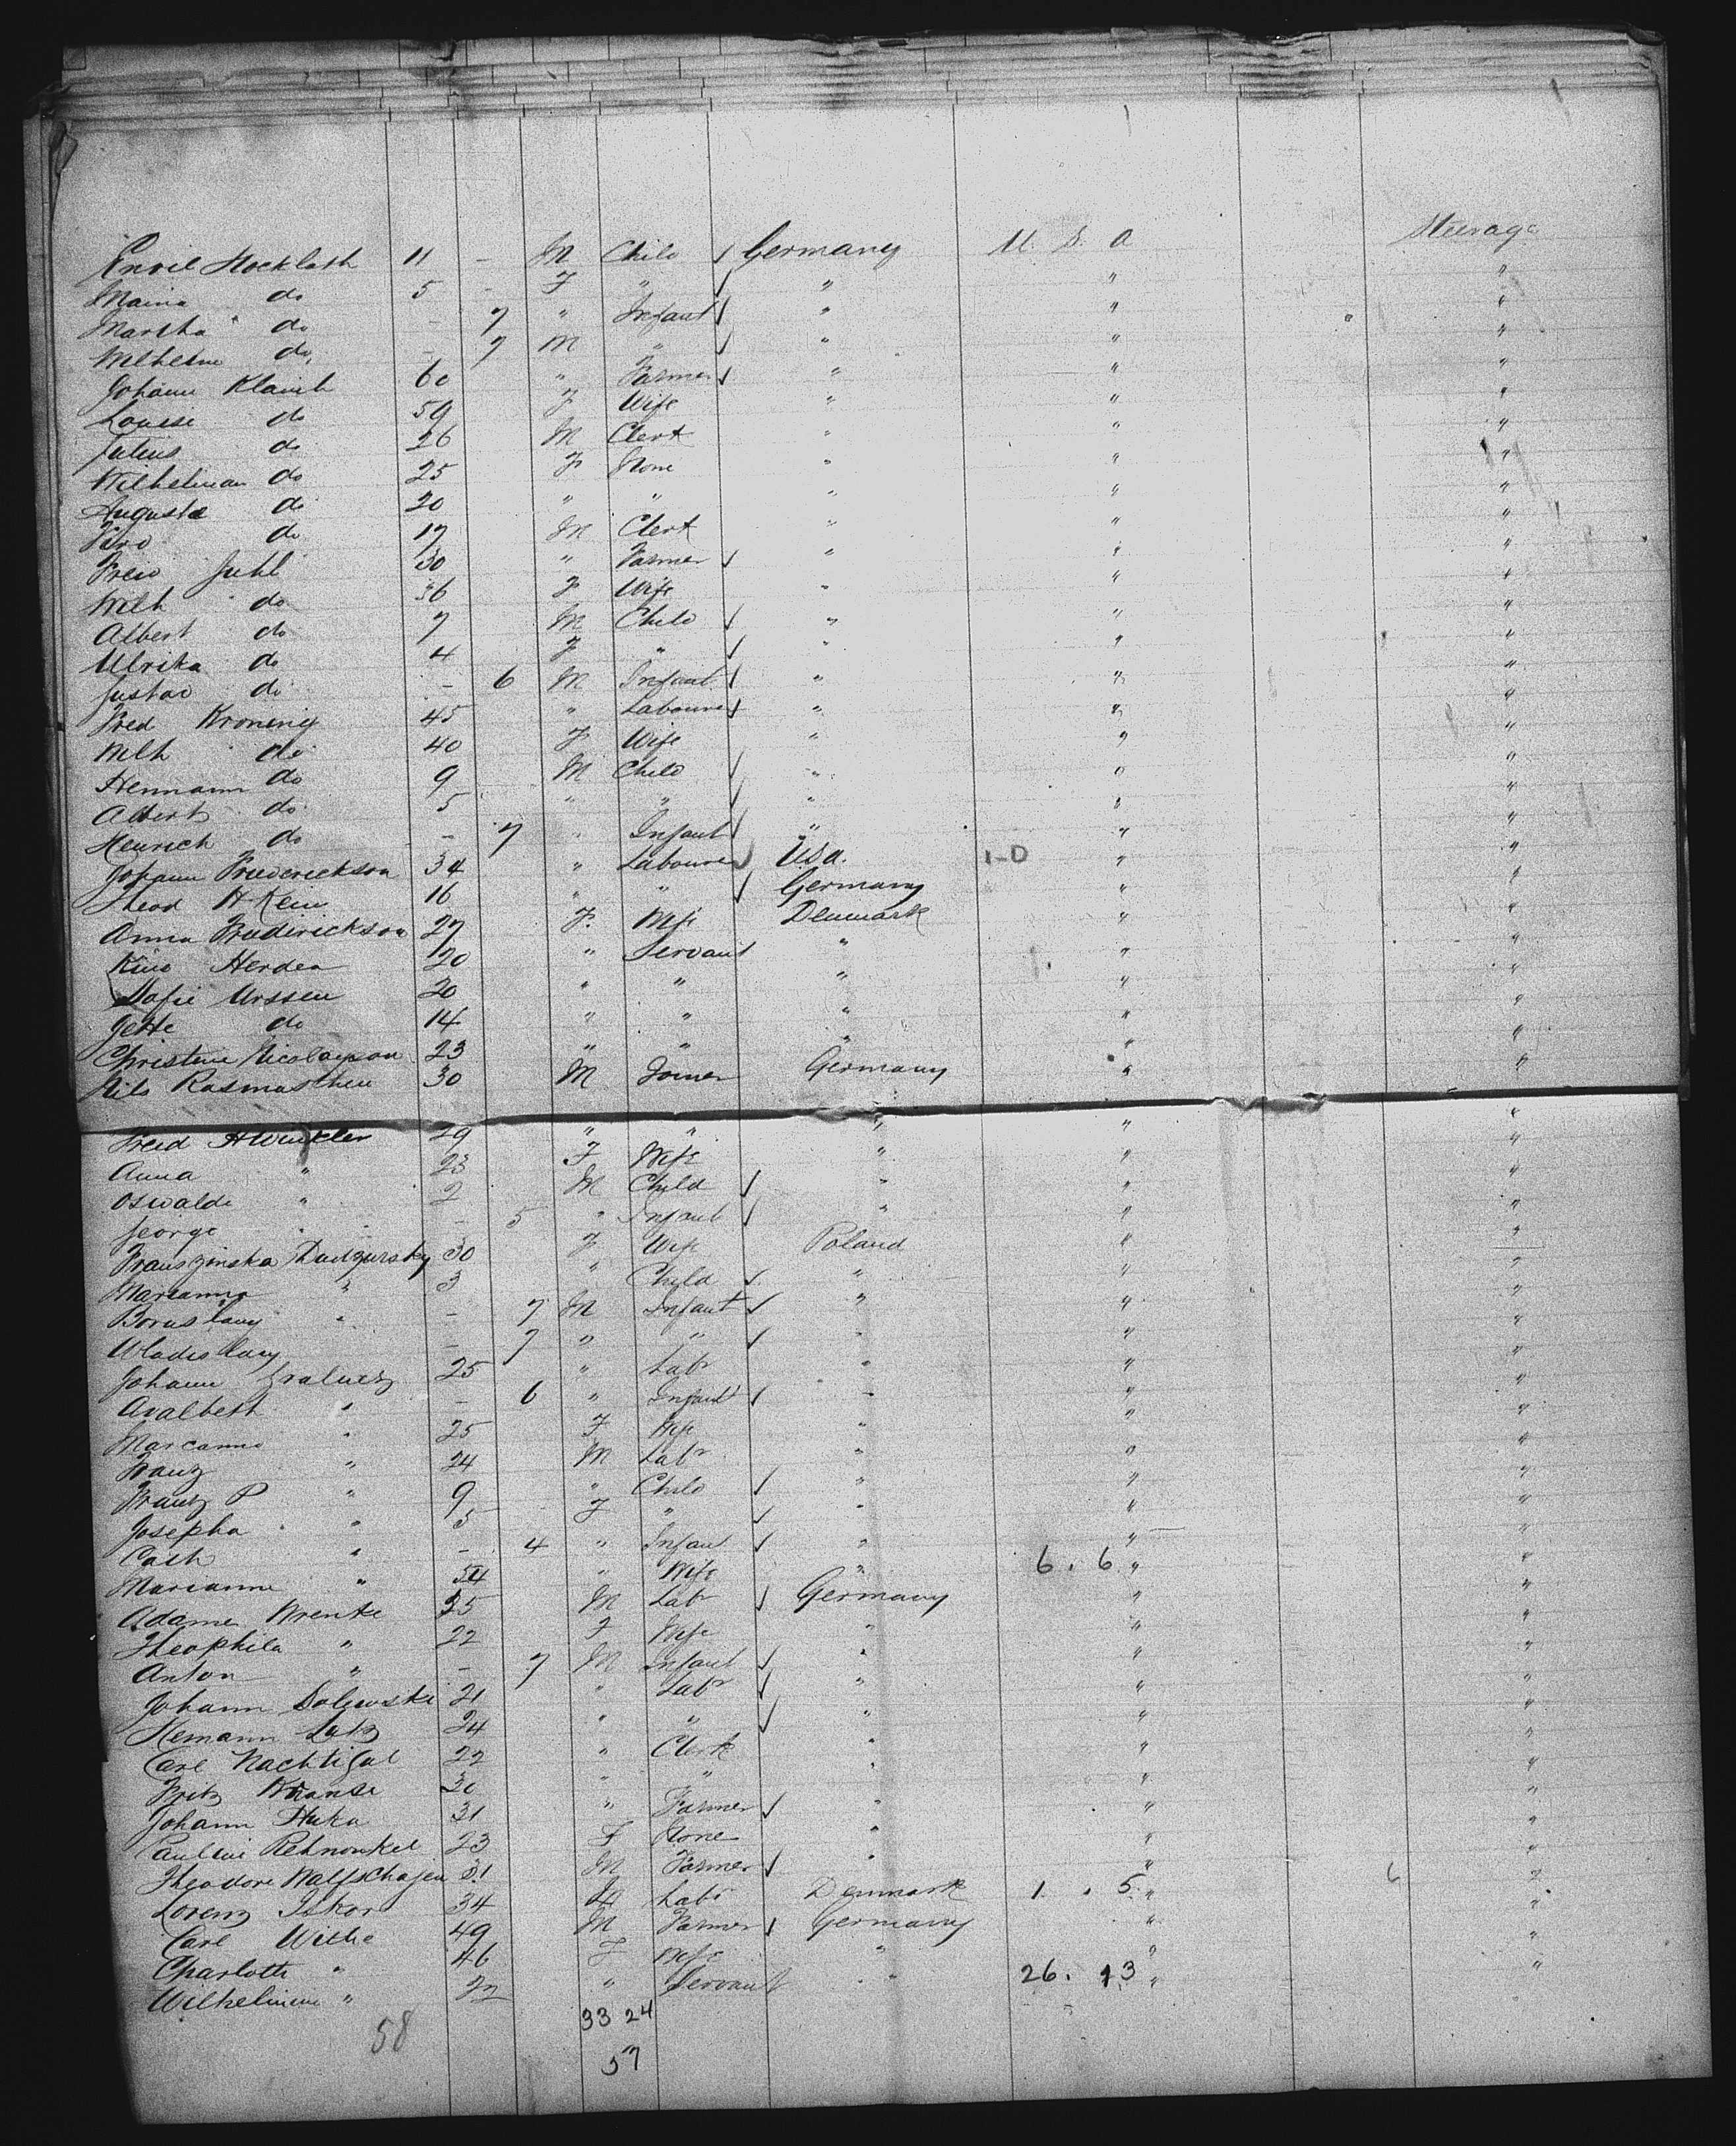 Emil Hocklath 11 - M Child √ Germany U. S. A Steerage
Maina do 5 - F " √ " " "
Martha do - 7 " Infant √ " " "
Wilhelm do - 7 M " √ " " "
Johann Klawih 60 " Farmer √ " " "
Louise do 59 F Wife " " "
Julius do 26 M Clerk " " "
Wilhelmina do 25 F None " " "
Auguste do 20 " " " " "
do 17 M Clerk " " "
Juhl 30 " Farmer √ " " "
Wilh do 36 F Wife " " "
Albert do 7 M Child √ " " "
Ulrika do 4 F " √ " " "
Gustav do - 6 M Infant √ " " "
Fred Kroning 45 " Labourer √ " " "
Wilh do 40 F Wife " " "
Hermann do 9 M Child √ " " "
Albert do 5 " " √ " " "
Heinrich do - 7 " Infant √ " " "
Johann Frederickson 34 " Labourer √ USA. 1-0 " "
Theod H Klein 16 " " √ Germany " "
Anna Frederickson 27 F. Wife Denmark " "
Herden 20 " Servant " " "
Sofie Urssen 20 " " " " "
Jette do 14 " " " " "
Christine Nicolayson 23 " " " " "
Nils Rasmasthen 30 M Joiner Germany " "
Fried H Winkler 29 " " " " "
Anna " 23 F Wife " " "
Oswald " 2 M Child √ " " "
George " - 5 " Infant √ " " "
Franszinska Dudzursky 30 F Wife Poland " "
Marianna " 3 " Child √ " " "
Boruslavy " - 7 M Infant √ " " "
Wladislavy - 7 " " √ " " "
Johann Gralucz 25 " Labr " " "
Avalbert " - 6 " Infant √ " " "
Marianna " 25 F Wife " " "
Franz " 24 M Labr " " "
Frantz P " 9 " Child √ " " "
Josepha " 5 F " √ " " "
Cath " - 4 " Infant √ " " "
Marianne " 54 " Wife " 6. 6 " "
Adame Wrenke 35 M Labr √ Germany " "
Theophila " 22 F Wife " " "
Anton " - 7 M Infant √ " " "
Johann Dolzewski 21 " Labr √ " " "
Hemann Lutz 24 " " √ " " "
Carl Nachtigal 22 " Clerk " " "
Fritz Kranse 30 " " " " "
Johann Huka 31 " Farmer √ " " "
Pauline Rehnonkel 23 F None " " "
Theodore Walfschagen 31 M Farmer √ " " "
Lorenz Iskor 34 Labr Denmark 1. 5 " "
Carl Withe 49 M Farmer √ Germany " "
Charlotte " 46 F Wife " " "
Wilhelmine " 22 " Servant " 26. 13 " "
33 24
58
57